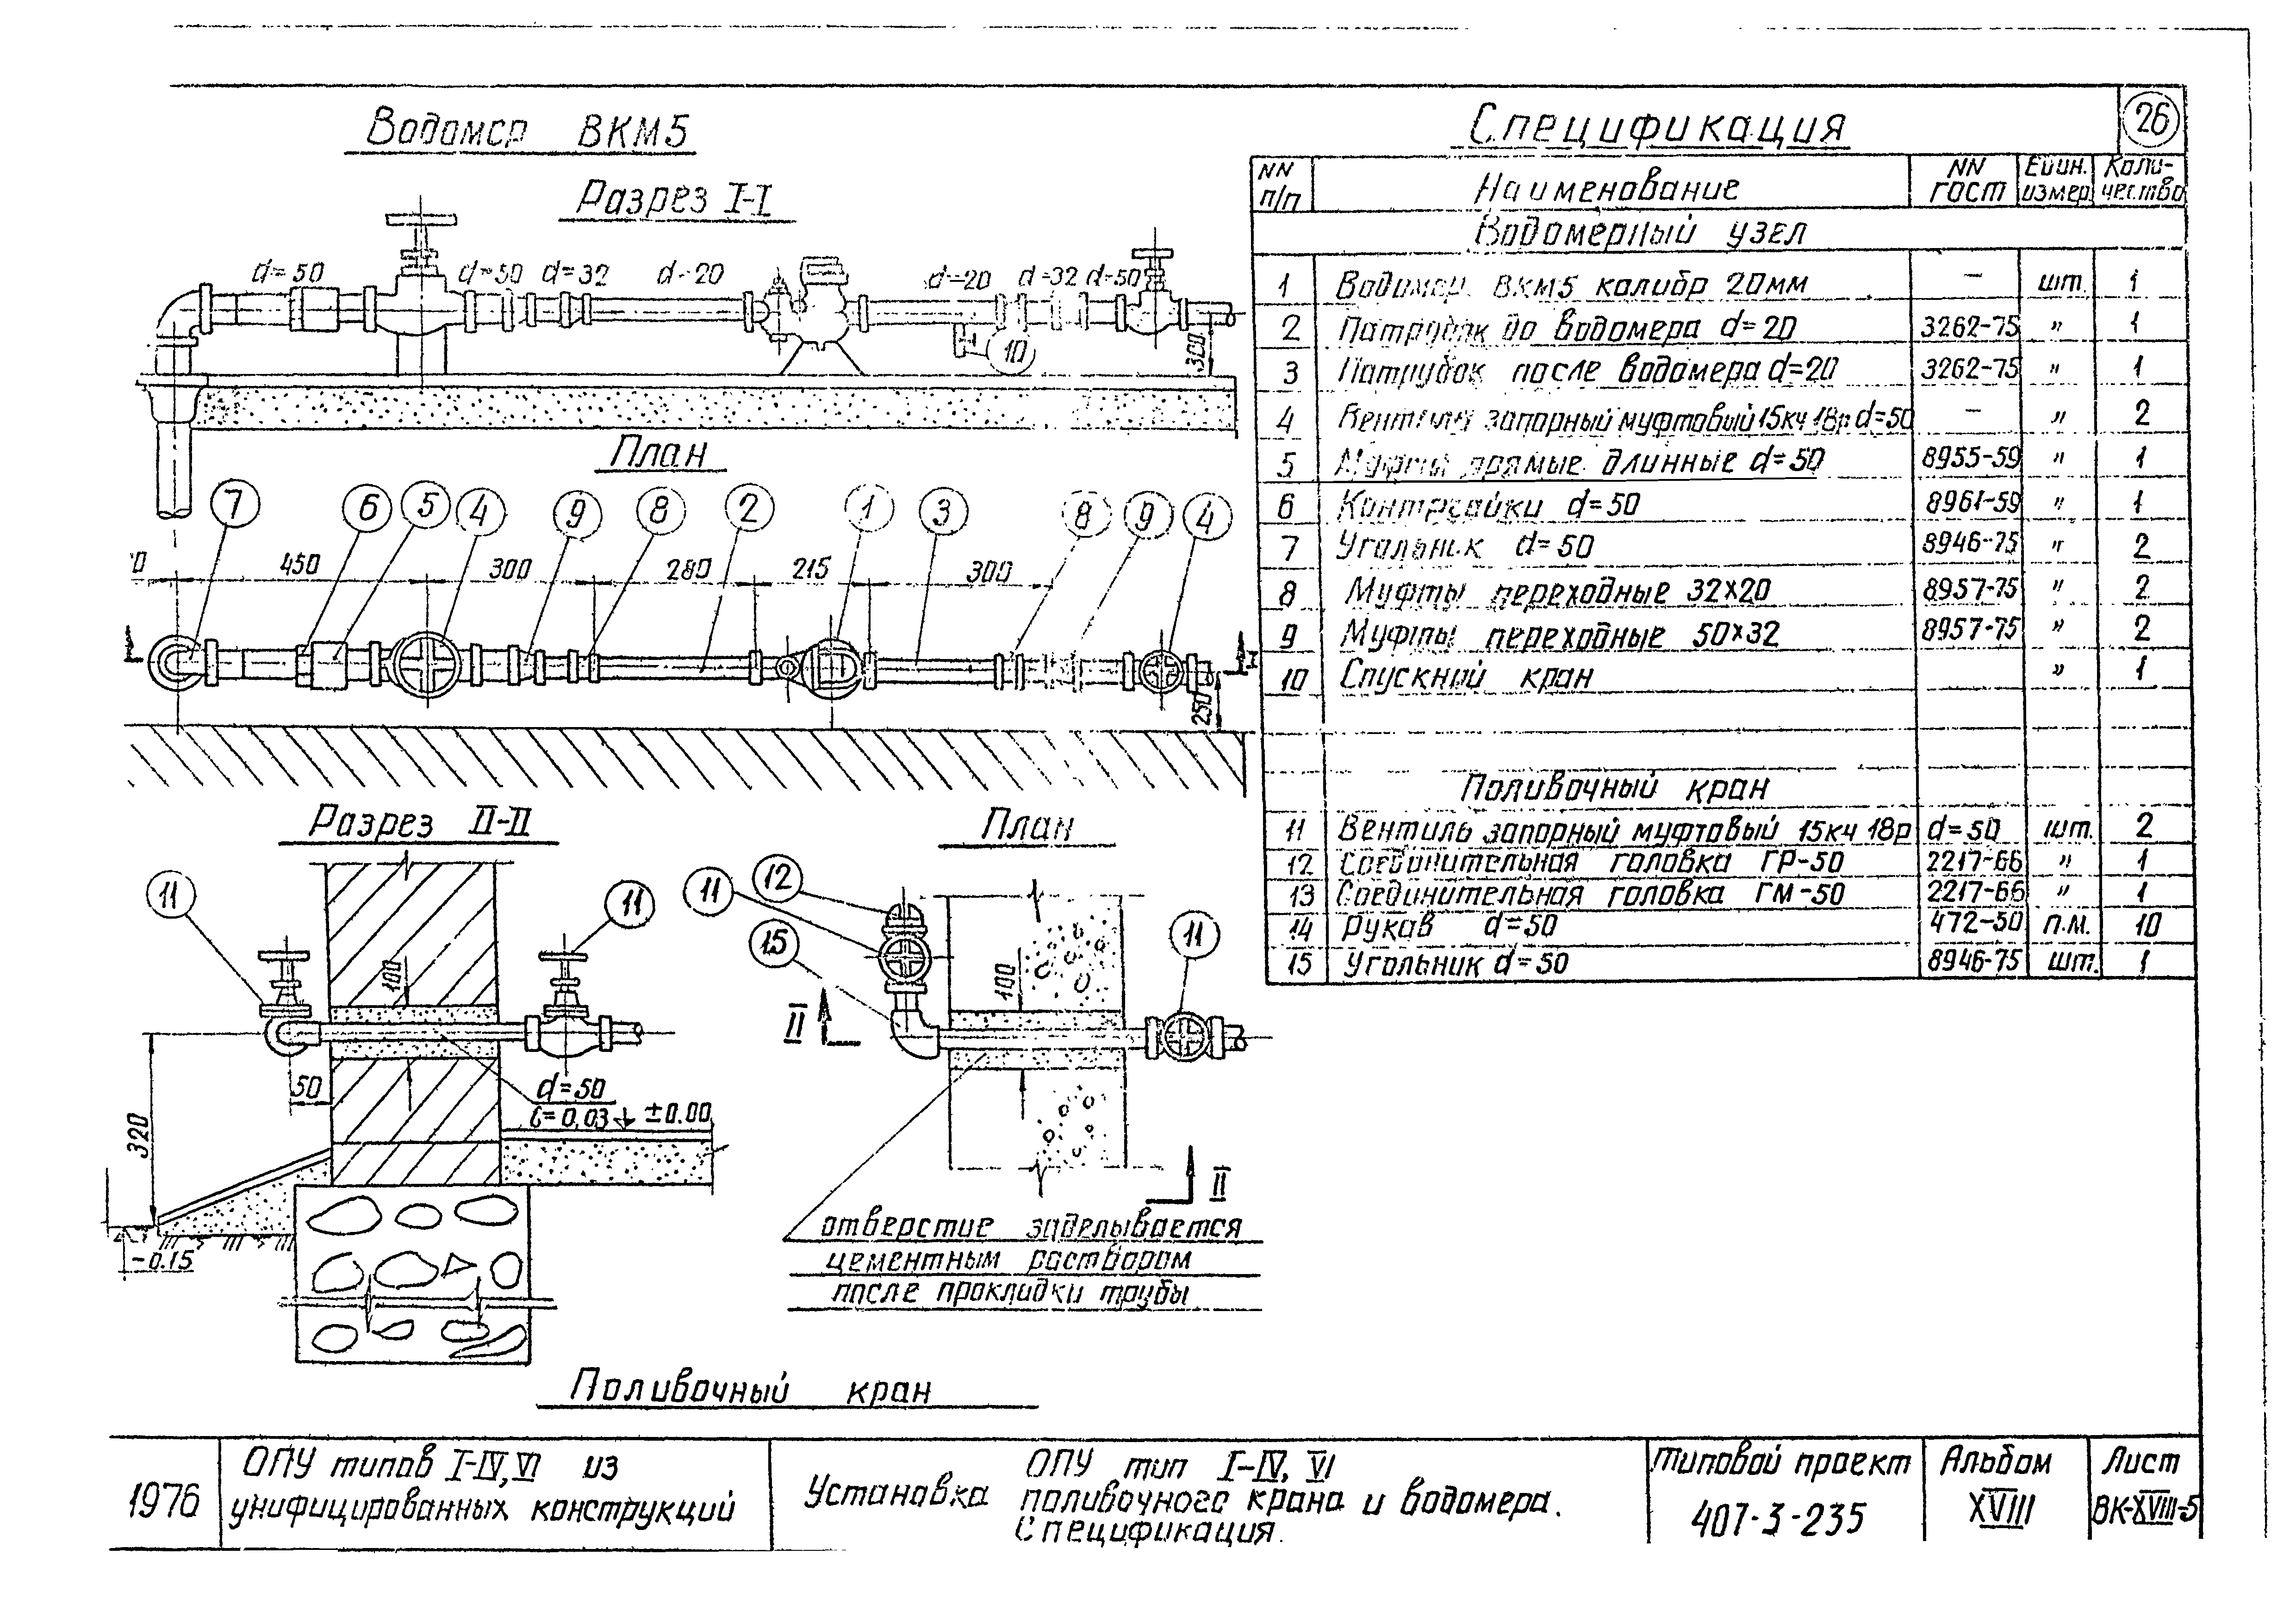 26
Водомер ВКМ5
Разрез I-I
d=50 d=50 d=32 d=20 d=20 d=32 d=50
10
300
План
7 6 5 4 9 8 2 1 3 8 9 4
450 300 280 215 300
250
Разрез II-II
11 11
100
50
320
d=50
i=0,03 ±0.00
-0.15
План
12 11 15 11
100
II
II
отверстие заделывается
цементным раствором
после прокладки трубы
Поливочный кран
Спецификация
NN п/п Наименование NN ГОСТ Един. измер. Коли-чество
Водомерный узел
1 Водомер ВКМ5 калибр 20мм – шт. 1
2 Патрубок до водомера d=20 3262-75 " 1
3 Патрубок после водомера d=20 3262-75 " 1
4 Вентиль запорный муфтовый 15кч 18р d=50 – " 2
5 Муфты прямые длинные d=50 8955-59 " 1
6 Контргайки d=50 8961-59 " 1
7 Угольник d=50 8946-75 " 2
8 Муфты переходные 32x20 8957-75 " 2
9 Муфты переходные 50x32 8957-75 " 2
10 Спускной кран " 1
Поливочный кран
11 Вентиль запорный муфтовый 15кч 18р d=50 шт. 2
12 Соединительная головка ГР-50 2217-66 " 1
13 Соединительная головка ГМ-50 2217-66 " 1
14 Рукав d=50 472-50 п.м. 10
15 Угольник d=50 8946-75 шт. 1
1976
ОПУ типов I-IV, VI из
унифицированных конструкций
ОПУ тип I-IV, VI
Установка поливочного крана и водомера.
Спецификация.
Типовой проект
407-3-235
Альбом
XVIII
Лист
ВК-XVIII-5